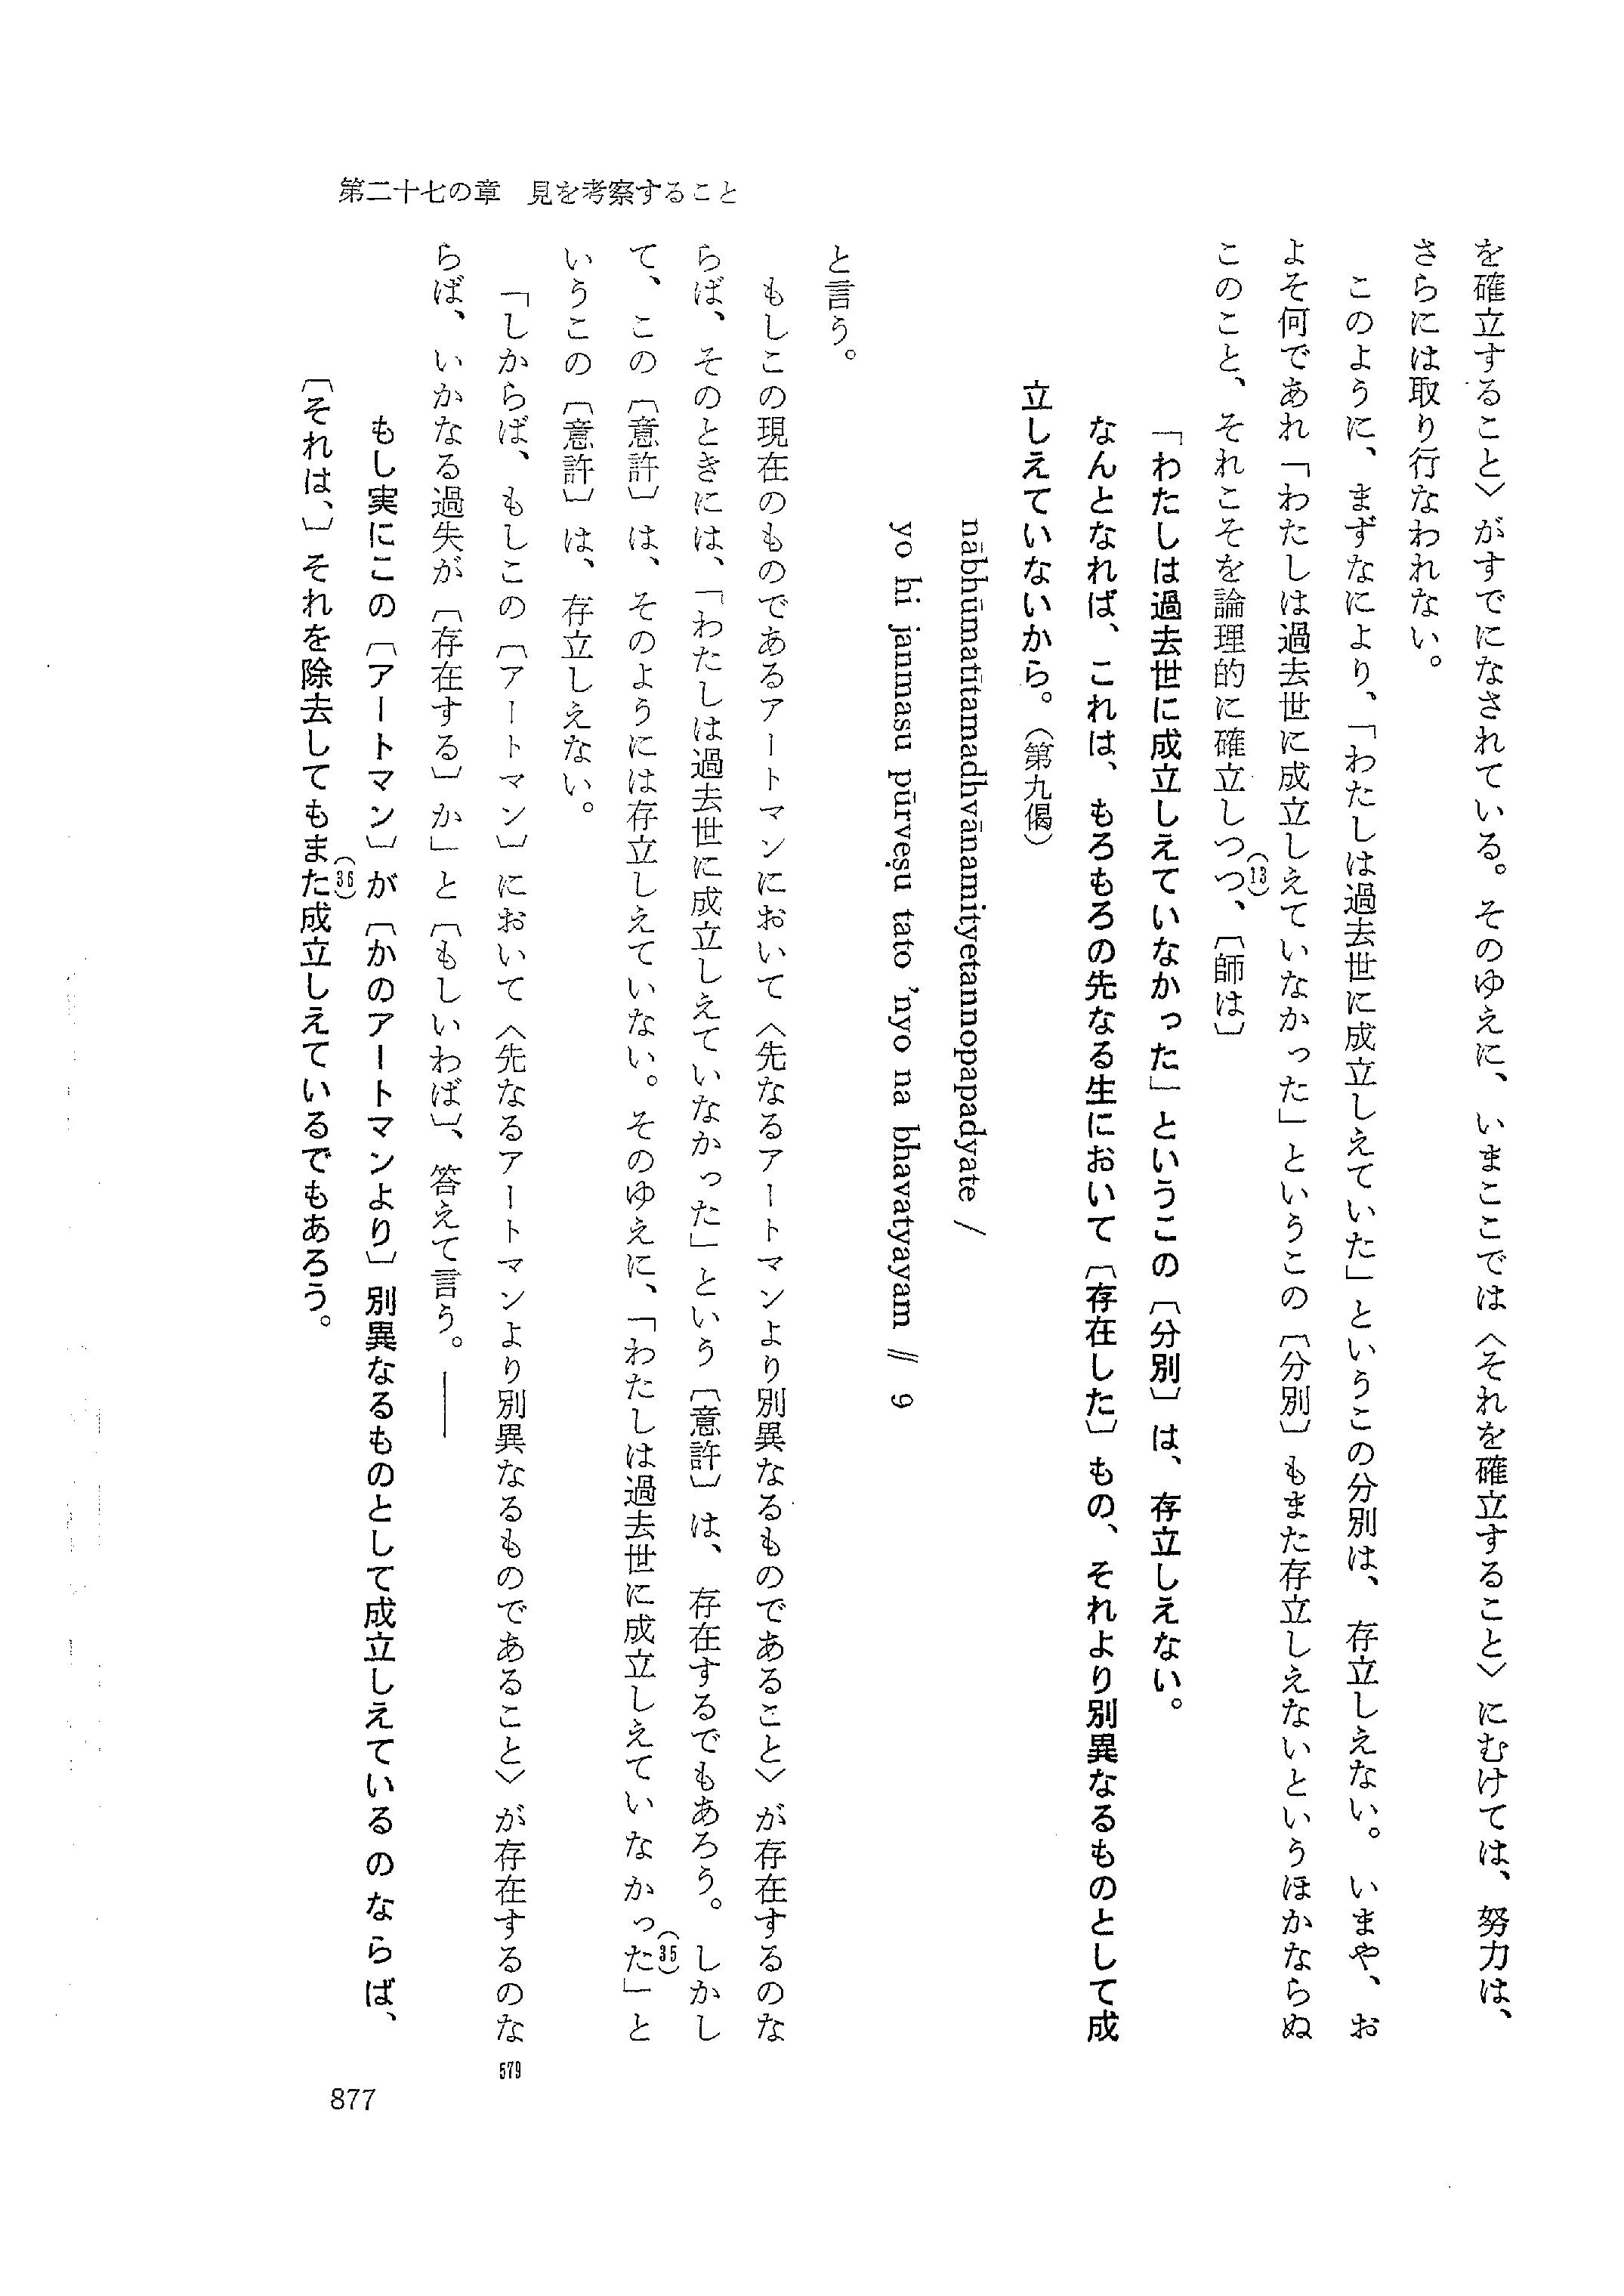 第二十七の章　見を考察すること
を確立すること〉がすでになされている。そのゆえに、いまここでは〈それを確立すること〉にむけては、努力は、
さらには取り行なわれない。
このように、まずなにより、「わたしは過去世に成立しえていた」というこの分別は、存立しえない。いまや、お
よそ何であれ「わたしは過去世に成立しえていなかった」というこの〔分別〕もまた存立しえないというほかならぬ
このこと、それこそを論理的に確立しつつ、〔師は〕(13)
「わたしは過去世に成立しえていなかった」というこの〔分別〕は、存立しえない。
なんとなれば、これは、もろもろの先なる生において〔存在した〕もの、それより別異なるものとして成
立しえていないから。（第九偈）
nābhūmatītamadhvānamityetannopapadyate /
yo hi janmasu pūrveṣu tato 'nyo na bhavatyayam // 9
と言う。
もしこの現在のものであるアートマンにおいて〈先なるアートマンより別異なるものであること〉が存在するのな
らば、そのときには、「わたしは過去世に成立しえていなかった」という〔意許〕は、存在するでもあろう。しかし
て、この〔意許〕は、そのようには存立しえていない。そのゆえに、「わたしは過去世に成立しえていなかった」と(35)
いうこの〔意許〕は、存立しえない。
「しからば、もしこの〔アートマン〕において〈先なるアートマンより別異なるものであること〉が存在するのな
579
らば、いかなる過失が〔存在する〕か」と〔もしいわば〕、答えて言う。――
もし実にこの〔アートマン〕が〔かのアートマンより〕別異なるものとして成立しえているのならば、
〔それは、〕それを除去してもまた成立しえているでもあろう。(36)
877